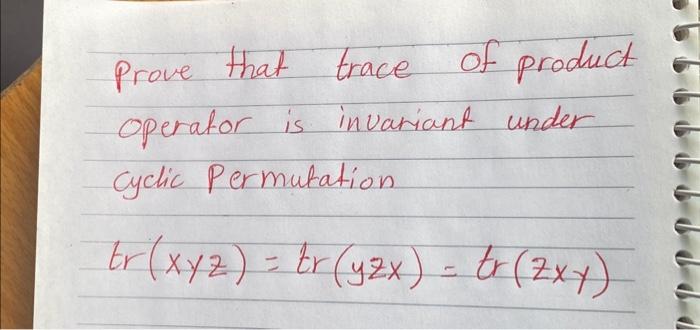 Prove that trace of product
operator is invariant under
cyclic Permutation
tr(xyz) = tr(yzx) = tr(zxy)